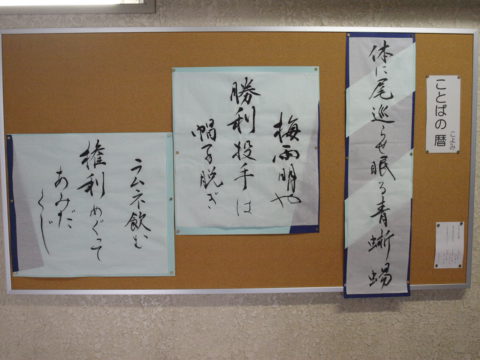 ことばの暦
こよみ
体に尾巡らせ眠る青蜥蜴
梅雨明や
勝利投手は
帽子脱ぎ
ラムネ飲む
権利めぐって
あみだ
くじ